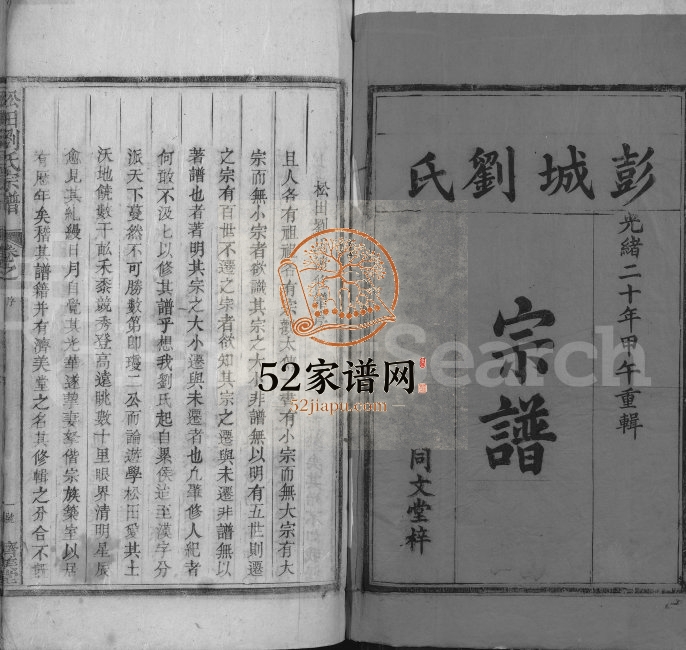 彭城劉氏
光緒二十年甲午重輯
宗譜
同文堂梓
松田劉
且人各有祖祖各有宗有小宗而無大宗有大
宗而無小宗者欲識其宗之大非譜無以明有五世則遷
之宗有百世不遷之宗者欲知其宗之遷與未遷非譜無以
著譜也者著明其宗之大小遷與未遷者也凡肇修人紀者
何敢不汲七以修其譜乎想我劉氏起自累侯迨至漢字分
派天下蔓然不可勝數第即瓊二公而論遊學松田愛其土
沃地饒數千畝禾黍競秀登高遠眺數十里眼界清明星辰
愈見其糺縵日月自覺其光華遂挈妻拏偕宗族築室以居
有歷年矣稽其譜籍并有濟美堂之名其修輯之分合不
松田劉氏宗譜
卷之
序
一
52家谱网
52jiapu.com
Search